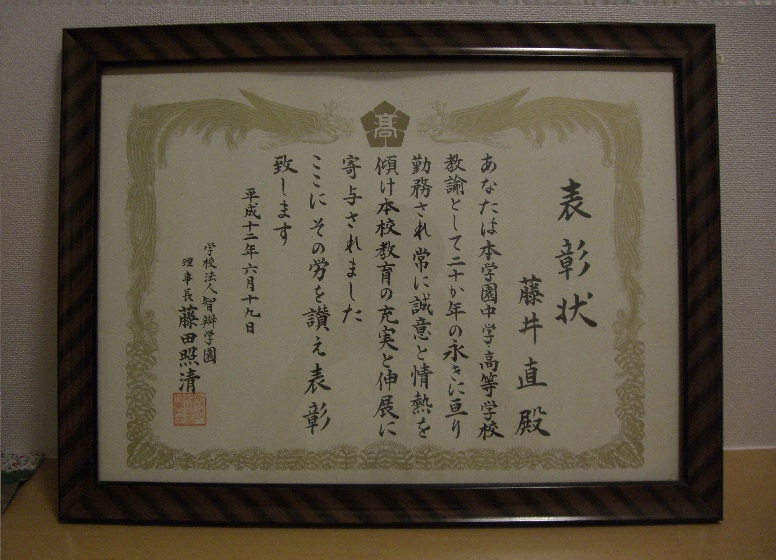 高
表彰状
藤井直殿
あなたは本学園中学高等学校
教諭として二十か年の永きに亘り
勤務され常に誠意と情熱を
傾け本校教育の充実と伸展に
寄与されました
ここにその労を讃え表彰
致します
平成十二年六月十九日
学校法人智辯学園
理事長藤田照清